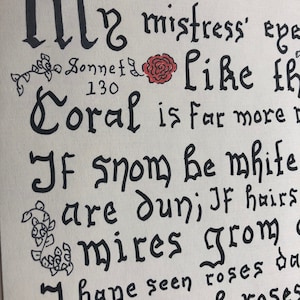 My mistress' eye
Sonnet
130
like th
Coral is far more
If snow be white
are dun; If hairs
wires grow
I have seen roses da
roses